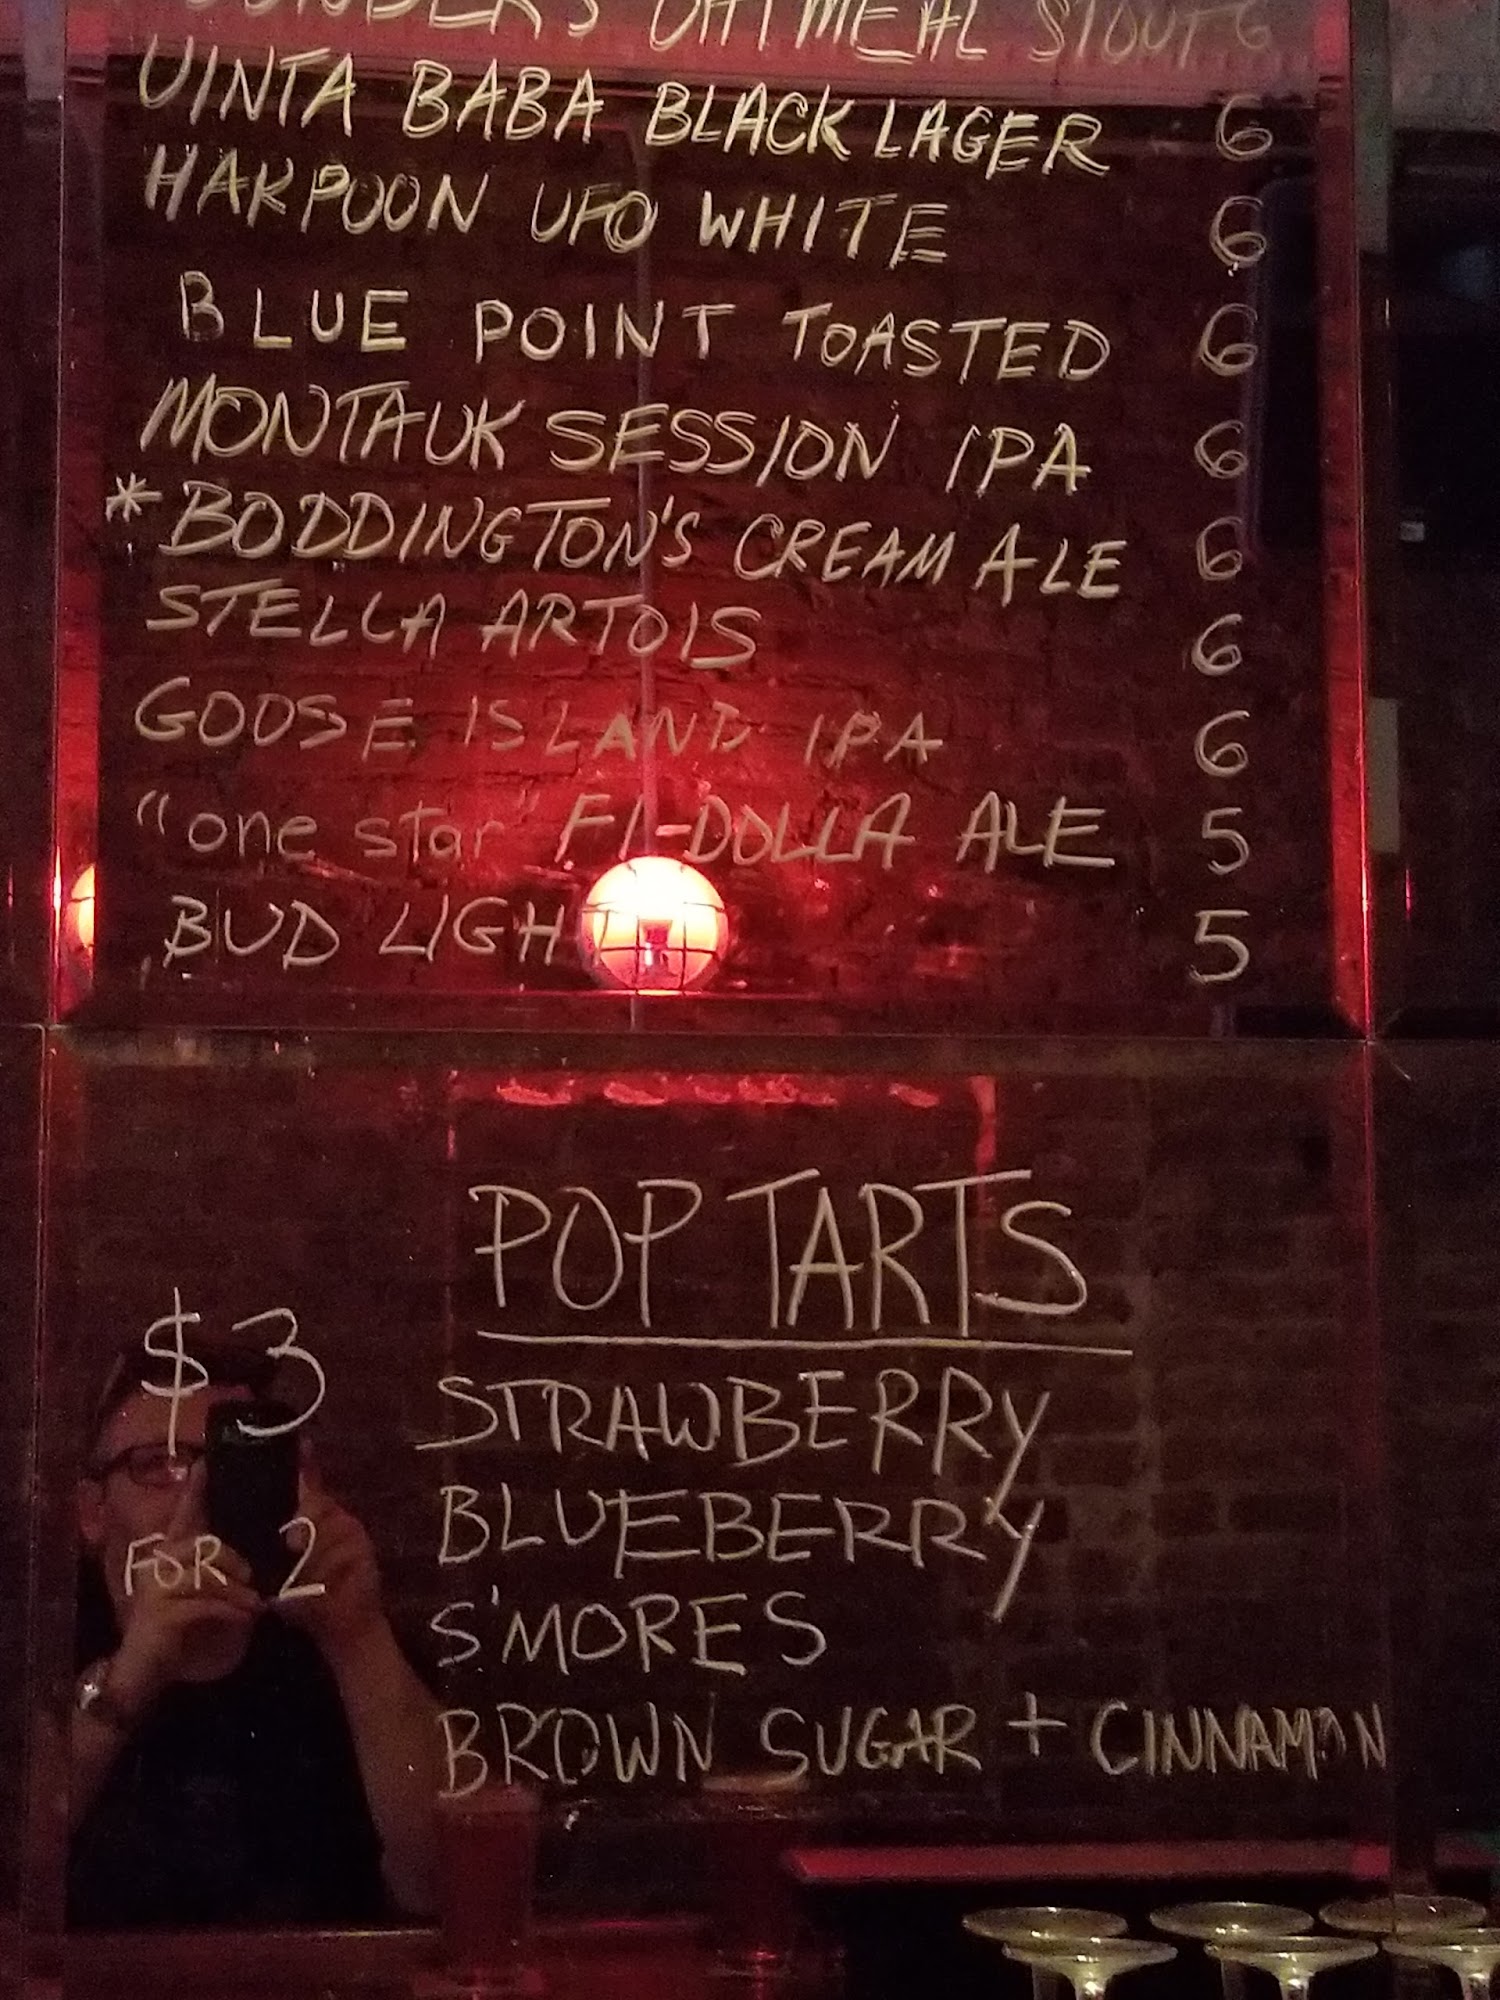 OATMEAL STOUT 6
UINTA BABA BLACK LAGER 6
HARPOON UFO WHITE 6
BLUE POINT TOASTED 6
MONTAUK SESSION IPA 6
*BODDINGTON'S CREAM ALE 6
STELLA ARTOIS 6
GOOSE ISLAND IPA 6
"one star" FI-DOLLA ALE 5
BUD LIGHT 5
POP TARTS
$3
FOR 2
STRAWBERRY
BLUEBERRY
S'MORES
BROWN SUGAR + CINNAMON